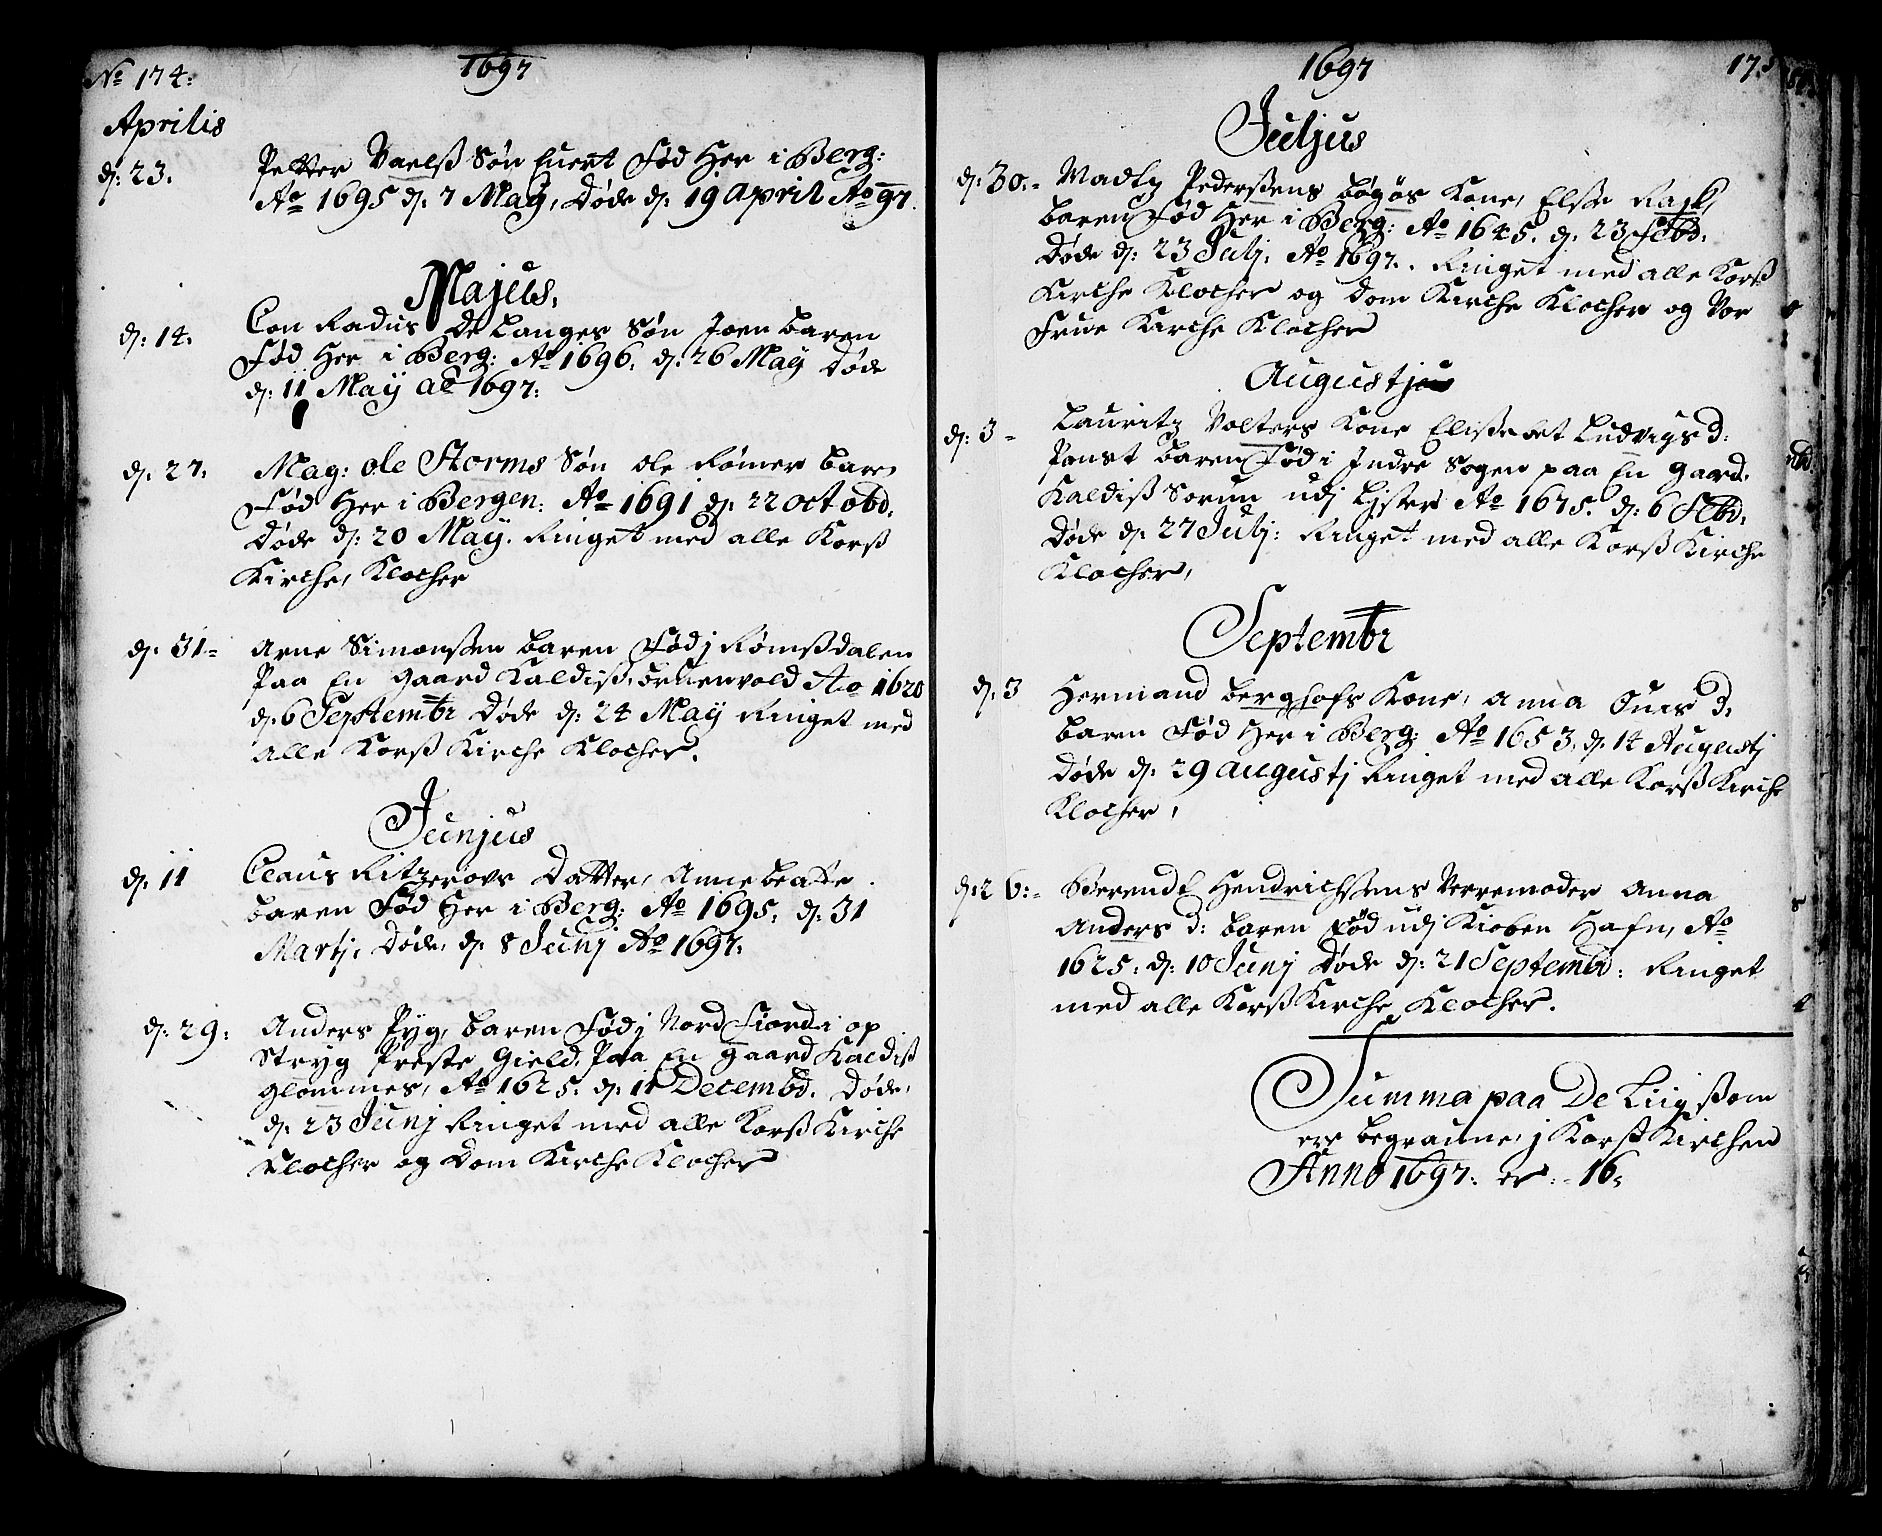 No 174:
1697
Aprilis
d: 23.
Petter Vaelß Søn Evert Fød Her i Berg:
Ao 1695 d: 7 Maÿ, Døde d: 19 April Ao 97.
Majus,
d: 14.
Con Radus De Langes Søn Joen baren
Fød Her i Berg: Ao 1696. d: 26 Maÿ Døde
d: 11 Maÿ ao 1697:
d: 27.
Mag: ole Storms Søn ole Rømer baren
Fød Her i Bergen: Ao 1691 d: 22 octobd.
Døde d: 20 Maÿ. Ringet med alle Korß
Kirche, Klocher
d: 31-
Arne Simonssen baren Fød j Rømßdalen
Paa En Gaard Kaldiß, Ao 1620
d: 6 Septembr Døde d: 24 Maÿ Ringet med
alle Korß Kirche Klocher.
Junjus
d: 11
Claus Ritzerovs Datter, Anne beatte
baren Fød Her i Berg: Ao 1695: d: 31
Martj. Døde, d: 8 Junj Ao 1697:
d: 29:
Anders Pyg, baren Fød j Nord Fiord i op
Stryg Preste Gield. Paa En gaard Kaldiß
glommes, Ao 1625. d: 11 Decembd. Døde,
d: 23 Junj Ringet med alle Korß Kirche
Klocher og Dom Kirche Klocher
1697
175
Juljus
d: 30.-
Madtz Pederssens bøgøs Kone, Elsse Rask,
baren Fød Her i Berg: Ao 1645. d: 23 Febd.
Døde d: 23 Julj. Ao 1697. Ringet med alle Korß
Kirche Klocher og Dom Kirche Klocher og Vor
Frue Kirche Klocher
Augustjus
d: 3-
Lauritz Volters Kone Elissebet Ludvigs d:
baren Fød i Indre Sogen paa En gard.
Kaldiß Sorum udj Lyster Ao 1675. d: 6 Febd:
Døde d: 27 Julj: Ringet med alle Korß Kirche
Klocher,
Septembr
d: 3
Hermand berghofs Kone, Anna d:
baren Fød Her i Berg: Ao 1653, d: 14 Augustj
Døde d: 29 augustj Ringet med alle Korß Kirche
Klocher,
d: 26:-
Berendt Hendrichssens Verremoder Anna
Anders d: baren Fød udj Kioben Hafn, Ao
1625: d: 10 Junj Døde d: 21 Septembr: Ringet
med alle Korß Kirche Klocher.
Summa paa De Liig ßom
ere begravne j Korß Kirchen
Anno 1697: er:- 16: